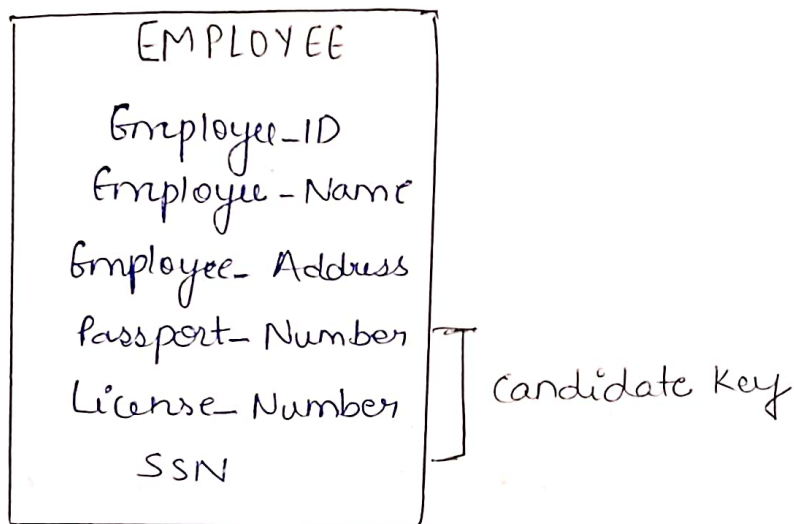 EMPLOYEE
Employee_ID
Employee - Name
Employee_ Address
Passport_ Number
License_ Number
SSN
Candidate Key